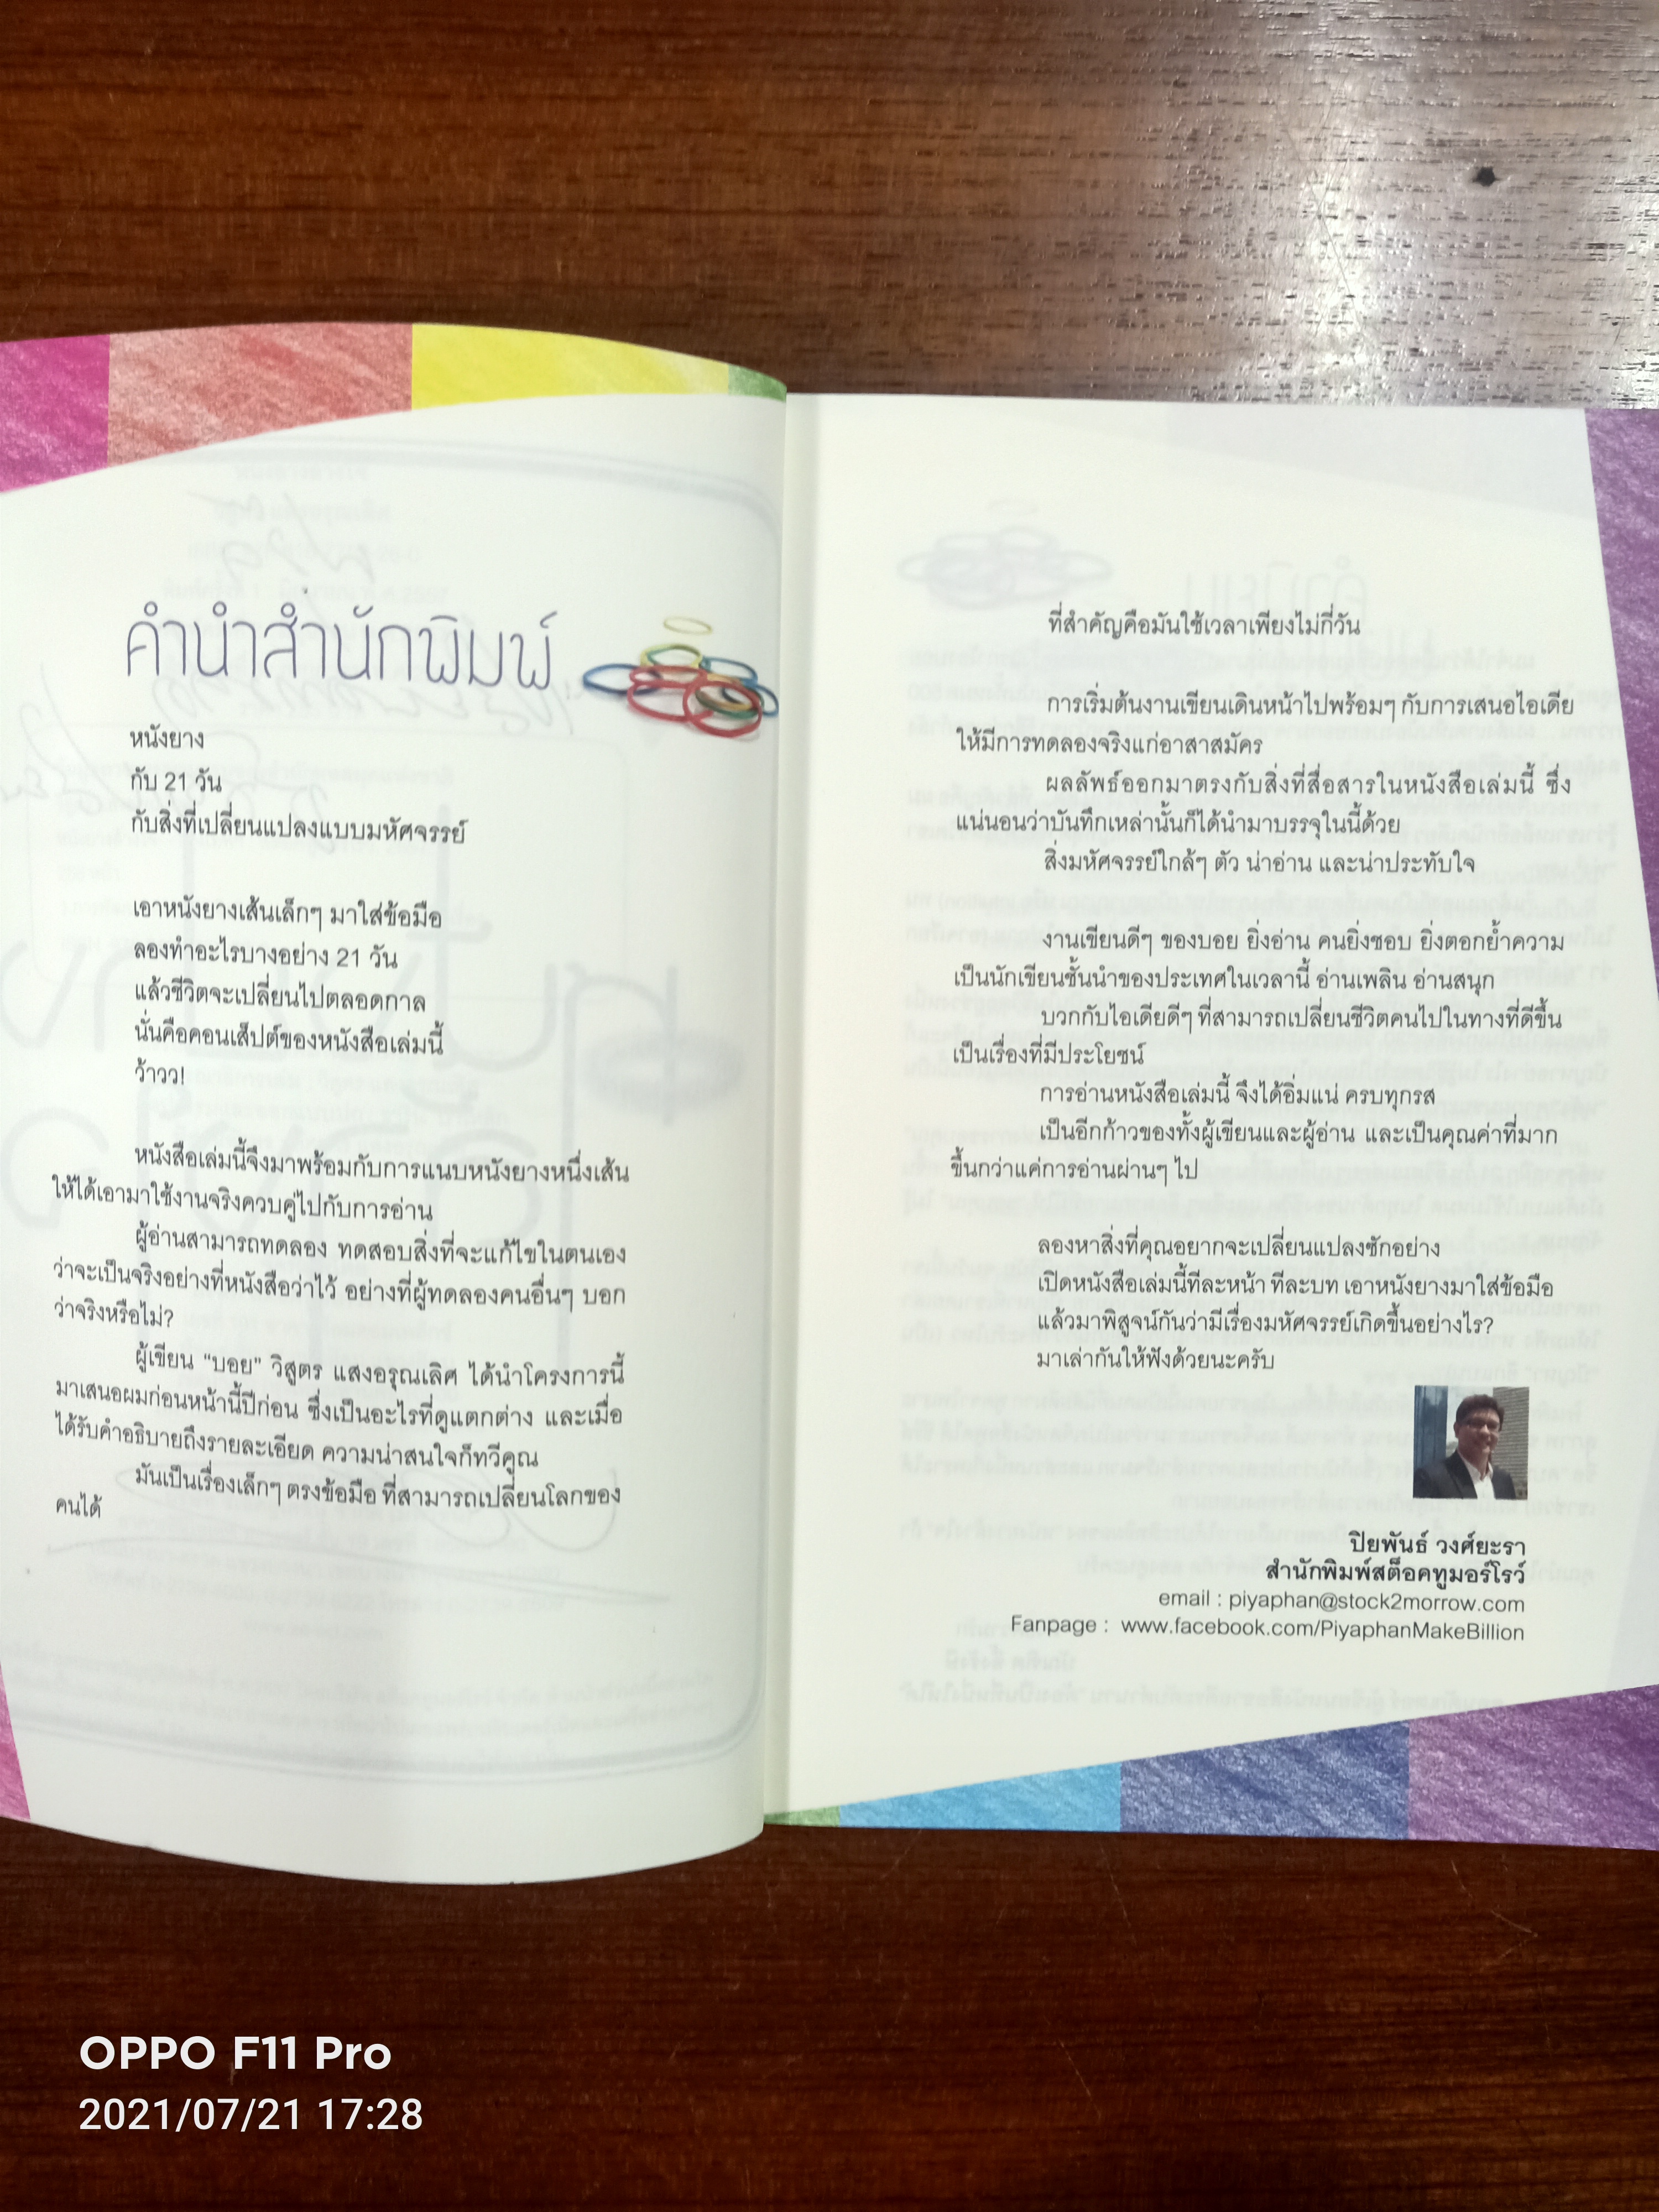 คำนำสำนักพิมพ์
หนังยาง
กับ 21 วัน
กับสิ่งที่เปลี่ยนแปลงแบบมหัศจรรย์
เอาหนังยางเส้นเล็กๆ มาใส่ข้อมือ
ลองทำอะไรบางอย่าง 21 วัน
แล้วชีวิตจะเปลี่ยนไปตลอดกาล
นั่นคือคอนเส็ปต์ของหนังสือเล่มนี้
ว้าวว!
หนังสือเล่มนี้จึงมาพร้อมกับการแนบหนังยางหนึ่งเส้น
ให้ได้เอามาใช้งานจริงควบคู่ไปกับการอ่าน
ผู้อ่านสามารถทดลอง ทดสอบสิ่งที่จะแก้ไขในตนเอง
ว่าจะเป็นจริงอย่างที่หนังสือว่าไว้ อย่างที่ผู้ทดลองคนอื่นๆ บอก
ว่าจริงหรือไม่?
ผู้เขียน “บอย” วิสูตร แสงอรุณเลิศ ได้นำโครงการนี้
มาเสนอผมก่อนหน้านี้ปีก่อน ซึ่งเป็นอะไรที่ดูแตกต่าง และเมื่อ
ได้รับคำอธิบายถึงรายละเอียด ความน่าสนใจก็ทวีคูณ
มันเป็นเรื่องเล็กๆ ตรงข้อมือ ที่สามารถเปลี่ยนโลกของ
คนได้
ที่สำคัญคือมันใช้เวลาเพียงไม่กี่วัน
การเริ่มต้นงานเขียนเดินหน้าไปพร้อมๆ กับการเสนอไอเดีย
ให้มีการทดลองจริงแก่อาสาสมัคร
ผลลัพธ์ออกมาตรงกับสิ่งที่สื่อสารในหนังสือเล่มนี้ ซึ่ง
แน่นอนว่าบันทึกเหล่านั้นก็ได้นำมาบรรจุในนี้ด้วย
สิ่งมหัศจรรย์ใกล้ๆ ตัว น่าอ่าน และน่าประทับใจ
งานเขียนดีๆ ของบอย ยิ่งอ่าน คนยิ่งชอบ ยิ่งตอกย้ำความ
เป็นนักเขียนชั้นนำของประเทศในเวลานี้ อ่านเพลิน อ่านสนุก
บวกกับไอเดียดีๆ ที่สามารถเปลี่ยนชีวิตคนไปในทางที่ดีขึ้น
เป็นเรื่องที่มีประโยชน์
การอ่านหนังสือเล่มนี้ จึงได้อิ่มแน่ ครบทุกรส
เป็นอีกก้าวของทั้งผู้เขียนและผู้อ่าน และเป็นคุณค่าที่มาก
ขึ้นกว่าแค่การอ่านผ่านๆ ไป
ลองหาสิ่งที่คุณอยากจะเปลี่ยนแปลงซักอย่าง
เปิดหนังสือเล่มนี้ทีละหน้า ทีละบท เอาหนังยางมาใส่ข้อมือ
แล้วมาพิสูจน์กันว่ามีเรื่องมหัศจรรย์เกิดขึ้นอย่างไร?
มาเล่ากันให้ฟังด้วยนะครับ
ปิยพันธ์ วงศ์ยะรา
สำนักพิมพ์สต็อคทูมอร์โรว์
email : piyaphan@stock2morrow.com
Fanpage : www.facebook.com/PiyaphanMakeBillion
OPPO F11 Pro
2021/07/21 17:28